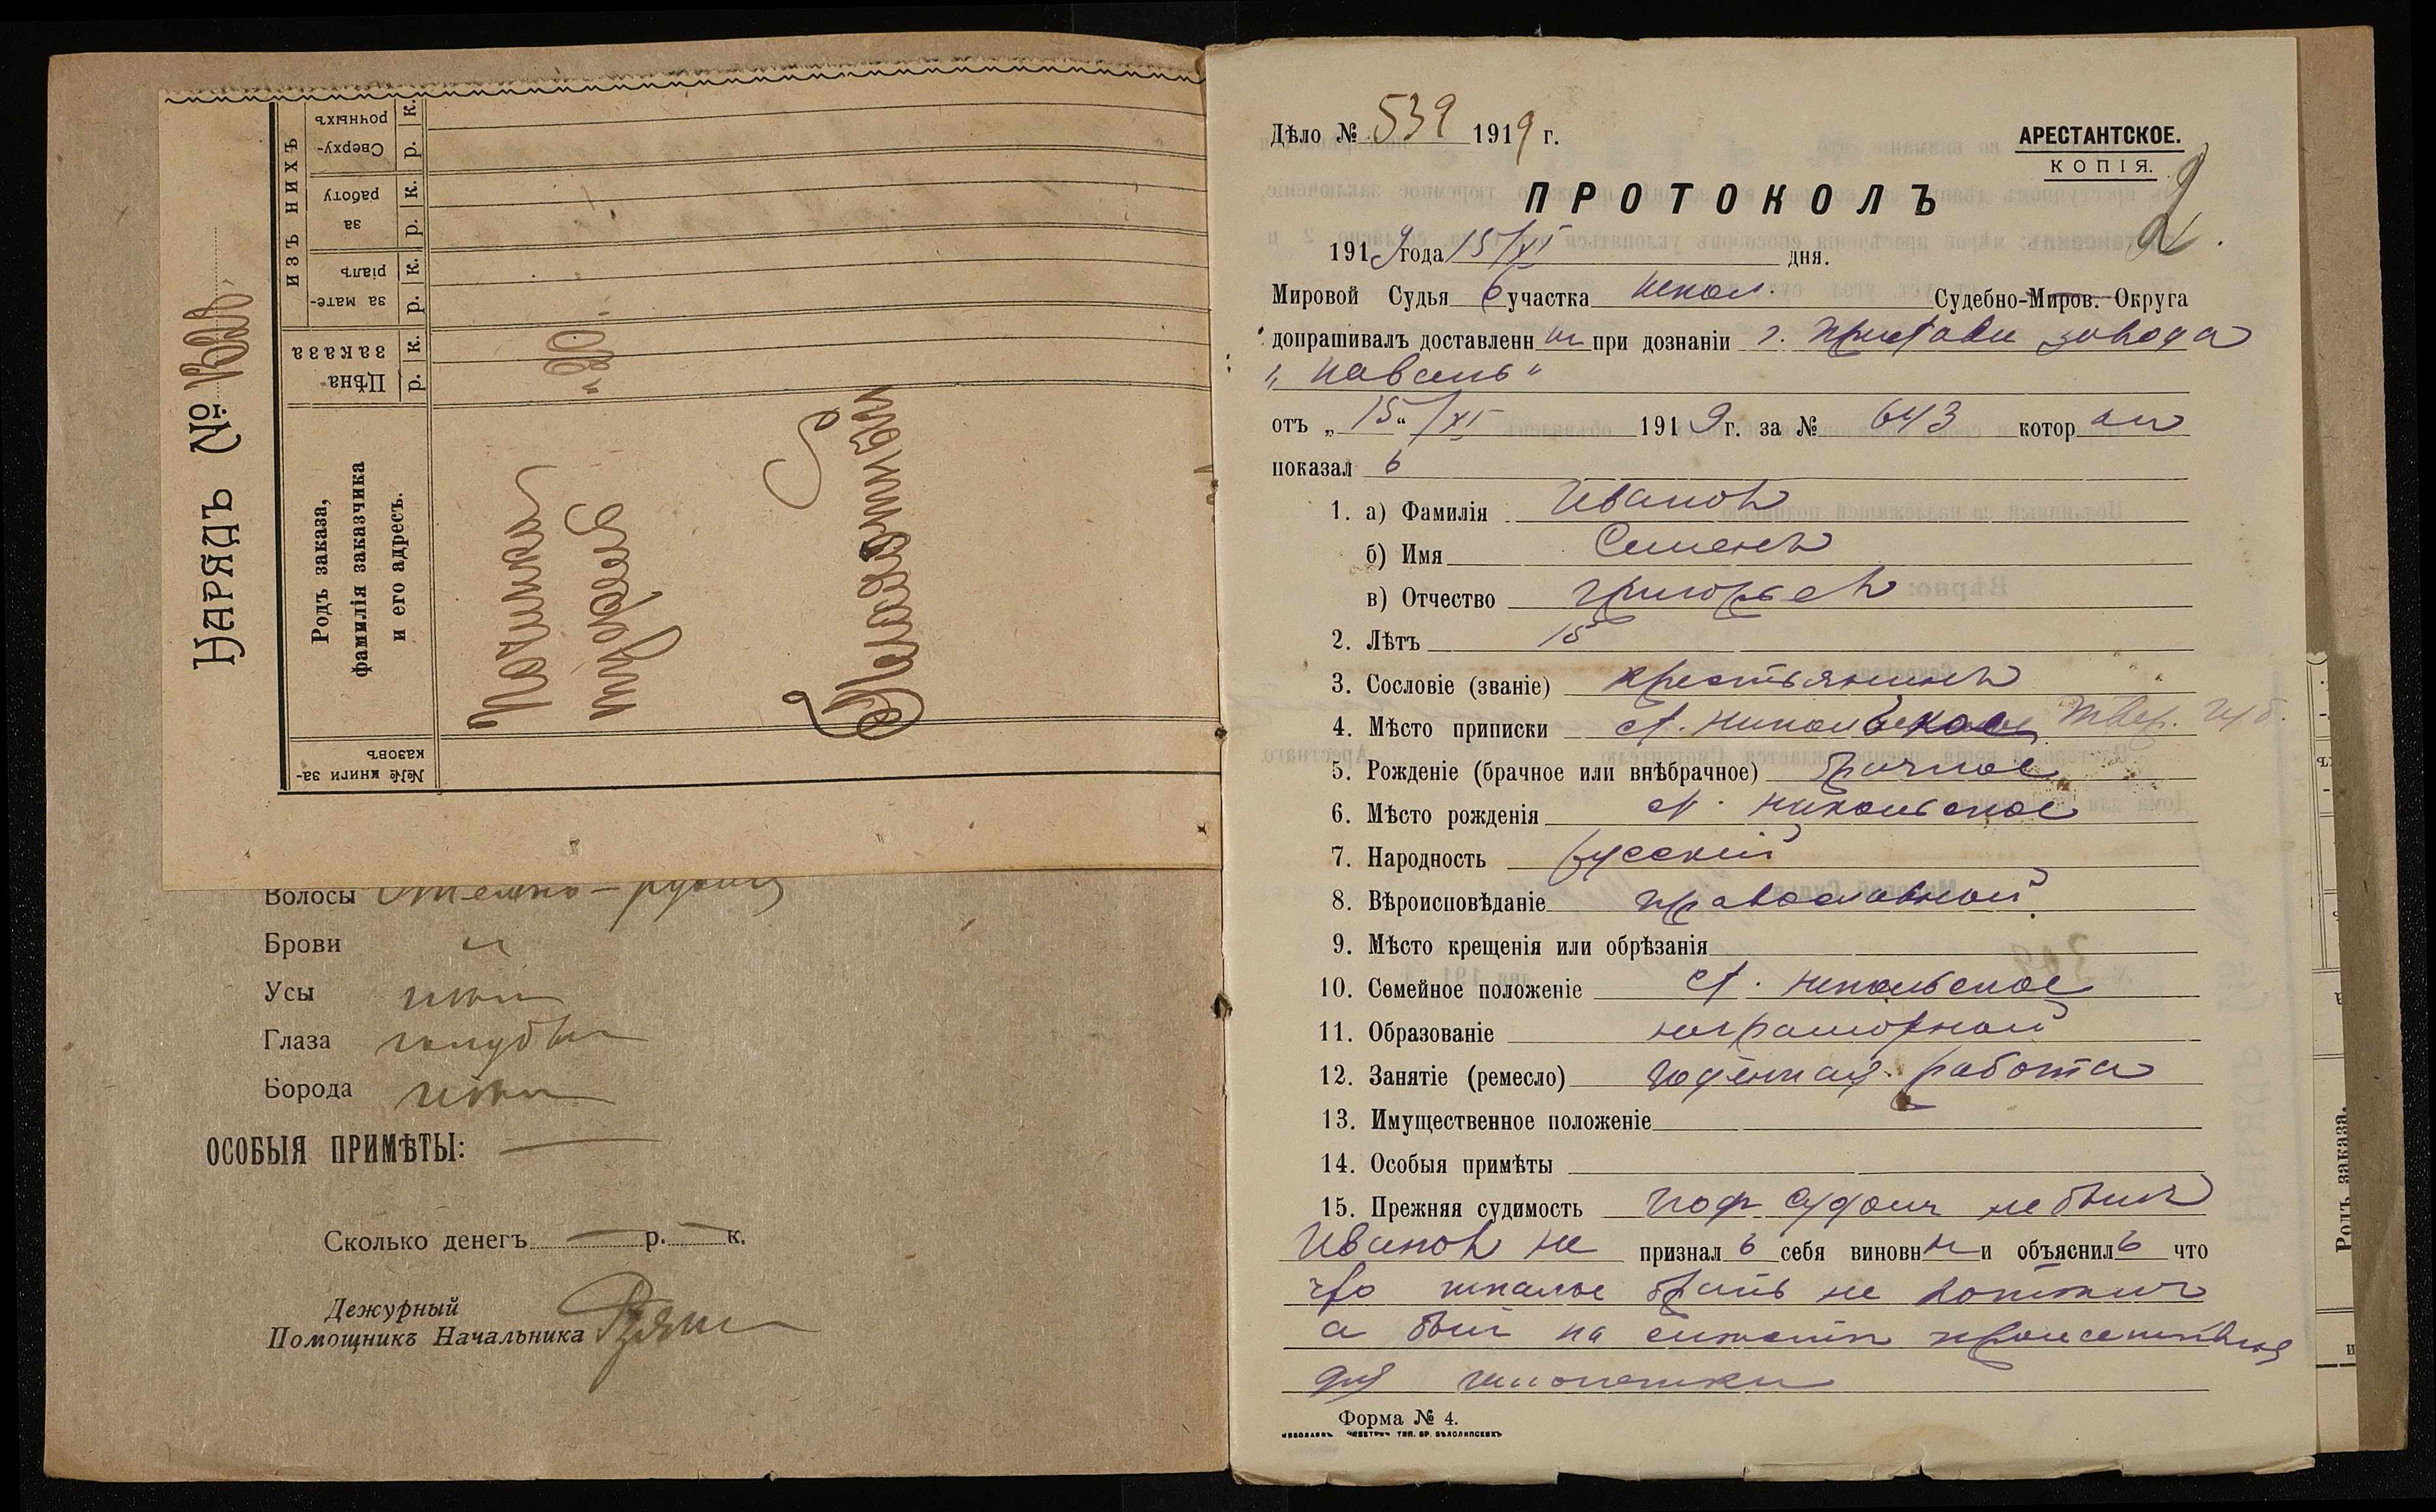 НАРЯДЪ №
Родъ заказа,
фамилія заказчика
и его адресъ.
№№ книги за-
казовъ
Цѣна
заказа
ИЗЪ НИХЪ
за мате-
ріалъ
за
работу
Сверху-
рочныхъ
р. к. р. к. р. к. р. к.
Волосы темно-русые
Брови
Усы
Глаза голубые
Борода
ОСОБЫЯ ПРИМѢТЫ: —
Сколько денегъ — р. — к.
Дежурный
Помощникъ Начальника
Дѣло № 539 1919 г.
АРЕСТАНТСКОЕ.
КОПІЯ.
2
ПРОТОКОЛЪ
1919 года 15/XI дня.
Мировой Судья 6 участка Никол. Судебно-Миров. Округа
допрашивалъ доставленн при дознаніи г. Пристава завода
„Наваль“
отъ „15“/XI 1919 г. за № 643 котор ый
показал ъ
1. а) Фамилія Ивановъ
б) Имя Семенъ
в) Отчество Григорьевъ
2. Лѣтъ 15
3. Сословіе (званіе) крестьянинъ
4. Мѣсто приписки с. Никольское Твер. губ.
5. Рожденіе (брачное или внѣбрачное) брачное
6. Мѣсто рожденія с. Никольское
7. Народность русский
8. Вѣроисповѣданіе православный
9. Мѣсто крещенія или обрѣзанія
10. Семейное положеніе с. Никольское
11. Образованіе неграмотный
12. Занятіе (ремесло) поденная работа
13. Имущественное положеніе
14. Особыя примѣты
15. Прежняя судимость под судом не былъ
Ивановъ не призналъ себя виновн и объяснилъ что
брать не
а был на происшествія
для
Форма № 4.